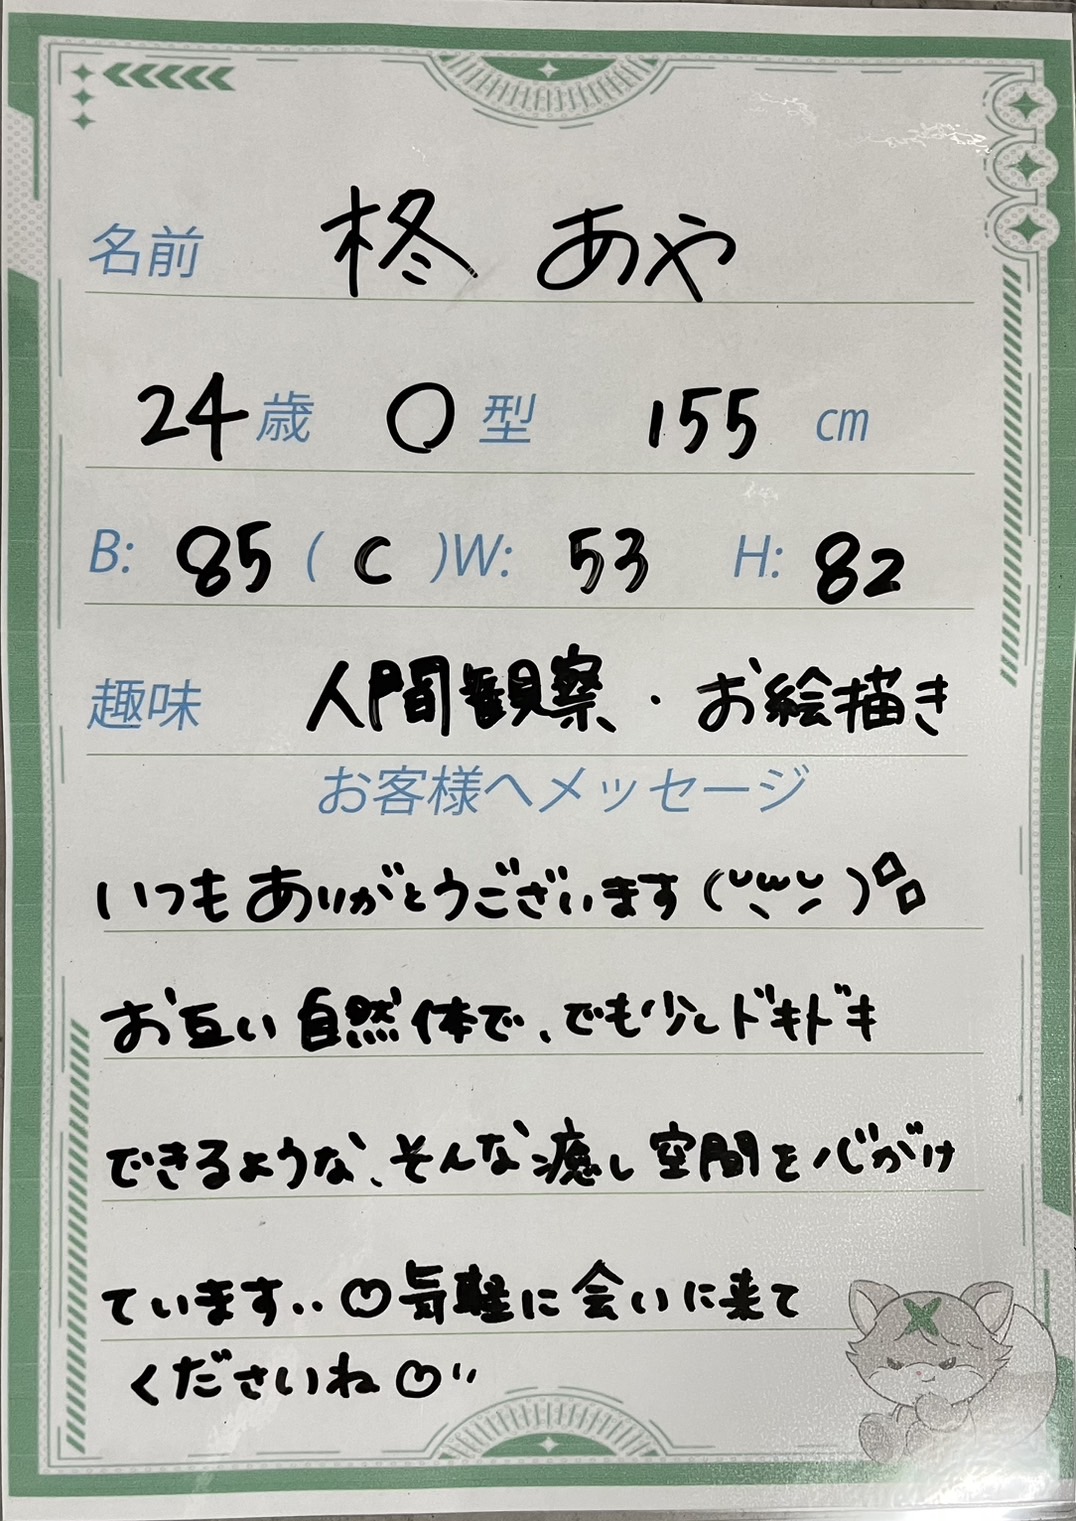 名前 柊 あや
24歳 O型 155 cm
B: 85 ( C )W: 53 H: 82
趣味 人間観察・お絵描き
お客様へメッセージ
いつもありがとうございます(˘ω˘)
お互い自然体で、でも少しドキドキ
できるような、そんな癒し空間を心がけ
ています..♡気軽に会いに来て
くださいね♡